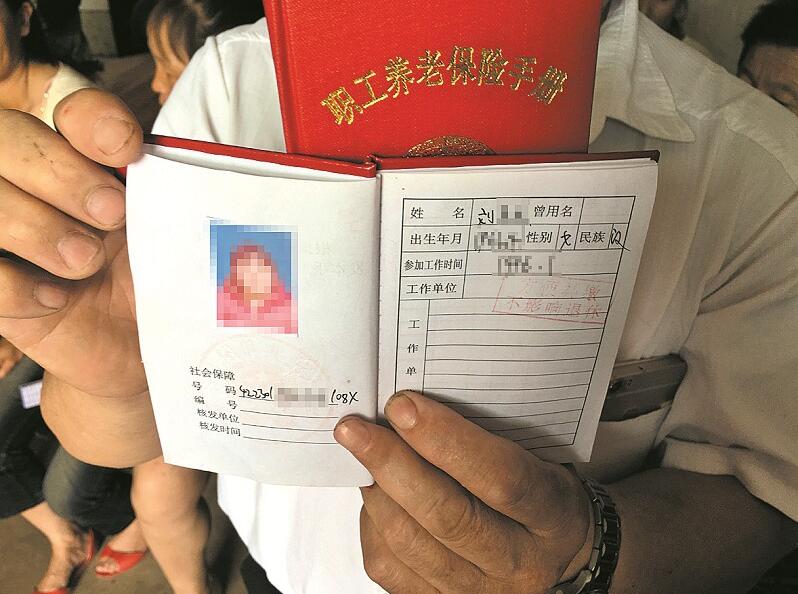 职工养老保险手册
社会保障
号 码 422301 108X
编 号
核发单位
核发时间
姓 名 刘 曾用名
出生年月 性别 女 民族 汉
参加工作时间
工作单位
不影响退休
工
作
单